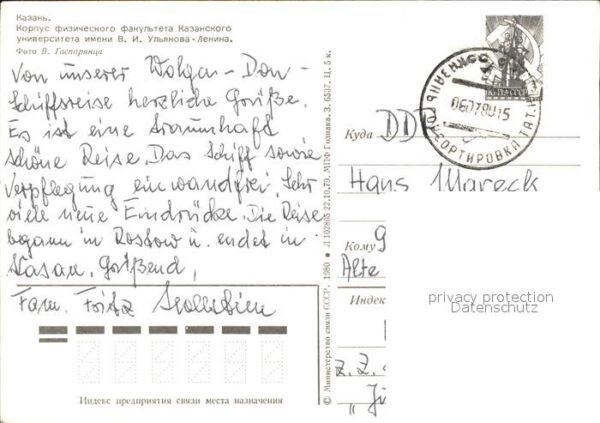 Казань.
Корпус физического факультета Казанского
университета имени В. И. Ульянова-Ленина.
Фото В. Госпарянца
Von unserer Wolga-Don-
Schiffsreise herzliche Grüße.
Es ist eine traumhaft
schöne Reise. Das Schiff sowie
Verpflegung einwandfrei. Sehr
viele neue Eindrücke. Die Reise
begann in Rostow u. endet in
Kasan. Grüßend,
Fam. Fritz
Индекс предприятия связи места назначения
© Министерство связи СССР, 1980 • Л 102865 22.10.79. МПФ Гознака, З. 6507. Ц. 5 к.
ПОЧТА СССР
06078015
СОРТИРОВКА
Куда DDR
Hans Mareck
Кому
Alte
Индекс
z. Z.
privacy protection
Datenschutz